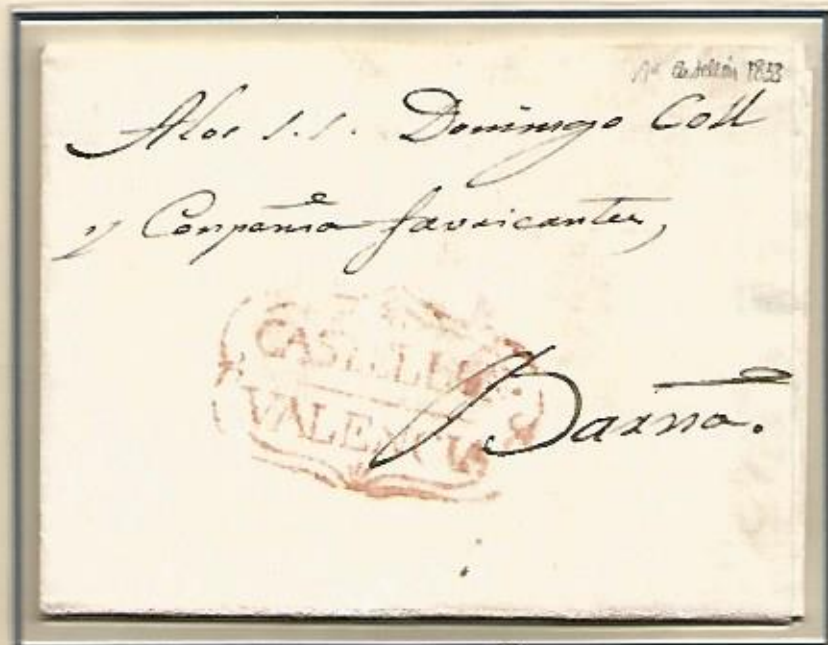 Castellón 1833
A los S.S. Domingo Coll
y Conpania favricantes,
CASTELLON.
VALENCIA
Barna.